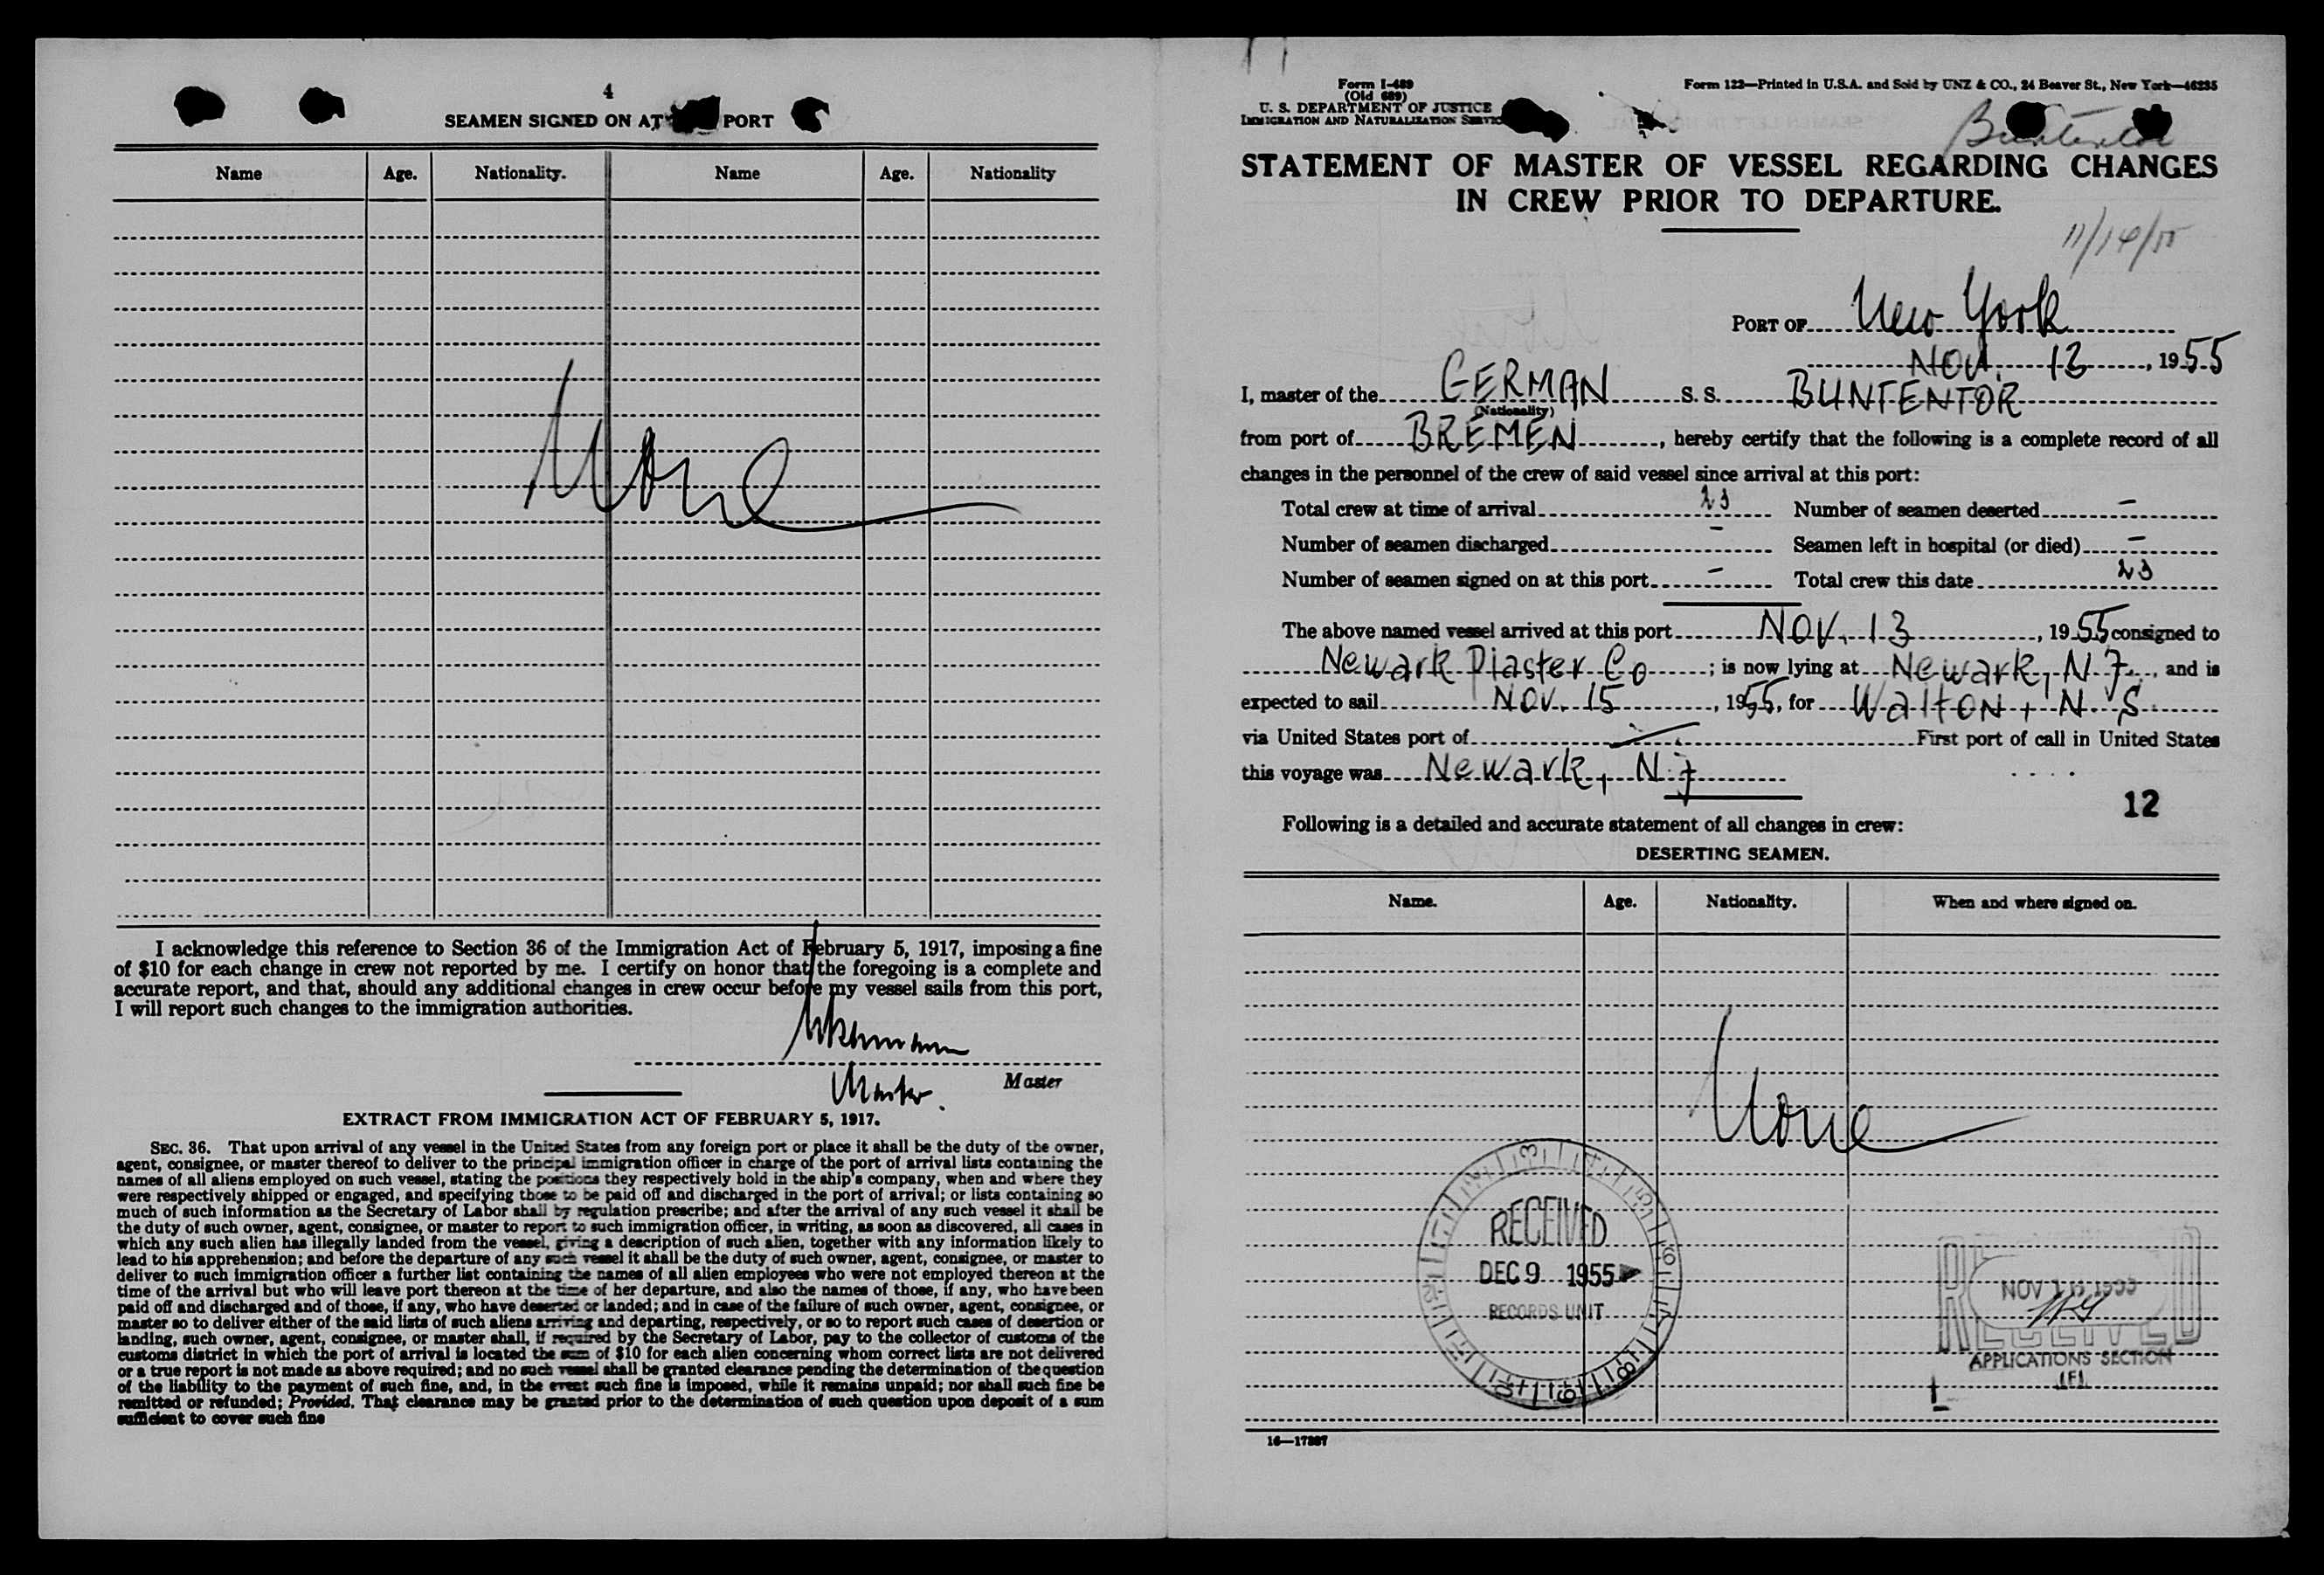 4
SEAMEN SIGNED ON AT PORT
Name Age. Nationality. Name Age. Nationality
None
I acknowledge this reference to Section 36 of the Immigration Act of February 5, 1917, imposing a fine
of $10 for each change in crew not reported by me. I certify on honor that the foregoing is a complete and
accurate report, and that, should any additional changes in crew occur before my vessel sails from this port,
I will report such changes to the immigration authorities.
Master
Master.
EXTRACT FROM IMMIGRATION ACT OF FEBRUARY 5, 1917.
SEC. 36. That upon arrival of any vessel in the United States from any foreign port or place it shall be the duty of the owner,
agent, consignee, or master thereof to deliver to the principal immigration officer in charge of the port of arrival lists containing the
names of all aliens employed on such vessel, stating the positions they respectively hold in the ship's company, when and where they
were respectively shipped or engaged, and specifying those to be paid off and discharged in the port of arrival; or lists containing so
much of such information as the Secretary of Labor shall by regulation prescribe; and after the arrival of any such vessel it shall be
the duty of such owner, agent, consignee, or master to report to such immigration officer, in writing, as soon as discovered, all cases in
which any such alien has illegally landed from the vessel, giving a description of such alien, together with any information likely to
lead to his apprehension; and before the departure of any such vessel it shall be the duty of such owner, agent, consignee, or master to
deliver to such immigration officer a further list containing the names of all alien employees who were not employed thereon at the
time of the arrival but who will leave port thereon at the time of her departure, and also the names of those, if any, who have been
paid off and discharged and of those, if any, who have deserted or landed; and in case of the failure of such owner, agent, consignee, or
master so to deliver either of the said lists of such aliens arriving and departing, respectively, or so to report such cases of desertion or
landing, such owner, agent, consignee, or master shall, if required by the Secretary of Labor, pay to the collector of customs of the
customs district in which the port of arrival is located the sum of $10 for each alien concerning whom correct lists are not delivered
or a true report is not made as above required; and no such vessel shall be granted clearance pending the determination of the question
of the liability to the payment of such fine, and, in the event such fine is imposed, while it remains unpaid; nor shall such fine be
remitted or refunded; Provided, That clearance may be granted prior to the determination of such question upon deposit of a sum
sufficient to cover such fine
Form I-489
(Old 689)
U. S. DEPARTMENT OF JUSTICE
IMMIGRATION AND NATURALIZATION SERVICE
Form 122—Printed in U.S.A. and Sold by UNZ & CO., 24 Beaver St., New York—46235
Buntentor
STATEMENT OF MASTER OF VESSEL REGARDING CHANGES
IN CREW PRIOR TO DEPARTURE.
11/14/55
PORT OF New York
NOV. 13, 1955
I, master of the GERMAN S. S. BUNTENTOR
(Nationality)
from port of BREMEN, hereby certify that the following is a complete record of all
changes in the personnel of the crew of said vessel since arrival at this port:
Total crew at time of arrival 23 Number of seamen deserted –
Number of seamen discharged – Seamen left in hospital (or died) –
Number of seamen signed on at this port – Total crew this date 23
The above named vessel arrived at this port NOV. 13, 1955 consigned to
Newark Plaster Co; is now lying at Newark, N.J., and is
expected to sail NOV. 15, 1955, for Walton, N.S.
via United States port of — First port of call in United States
this voyage was Newark, N.J
12
Following is a detailed and accurate statement of all changes in crew:
DESERTING SEAMEN.
Name. Age. Nationality. When and where signed on.
None
RECEIVED
DEC 9 1955
RECORDS UNIT
RECEIVED
NOV 1955
APPLICATIONS SECTION
16—17287